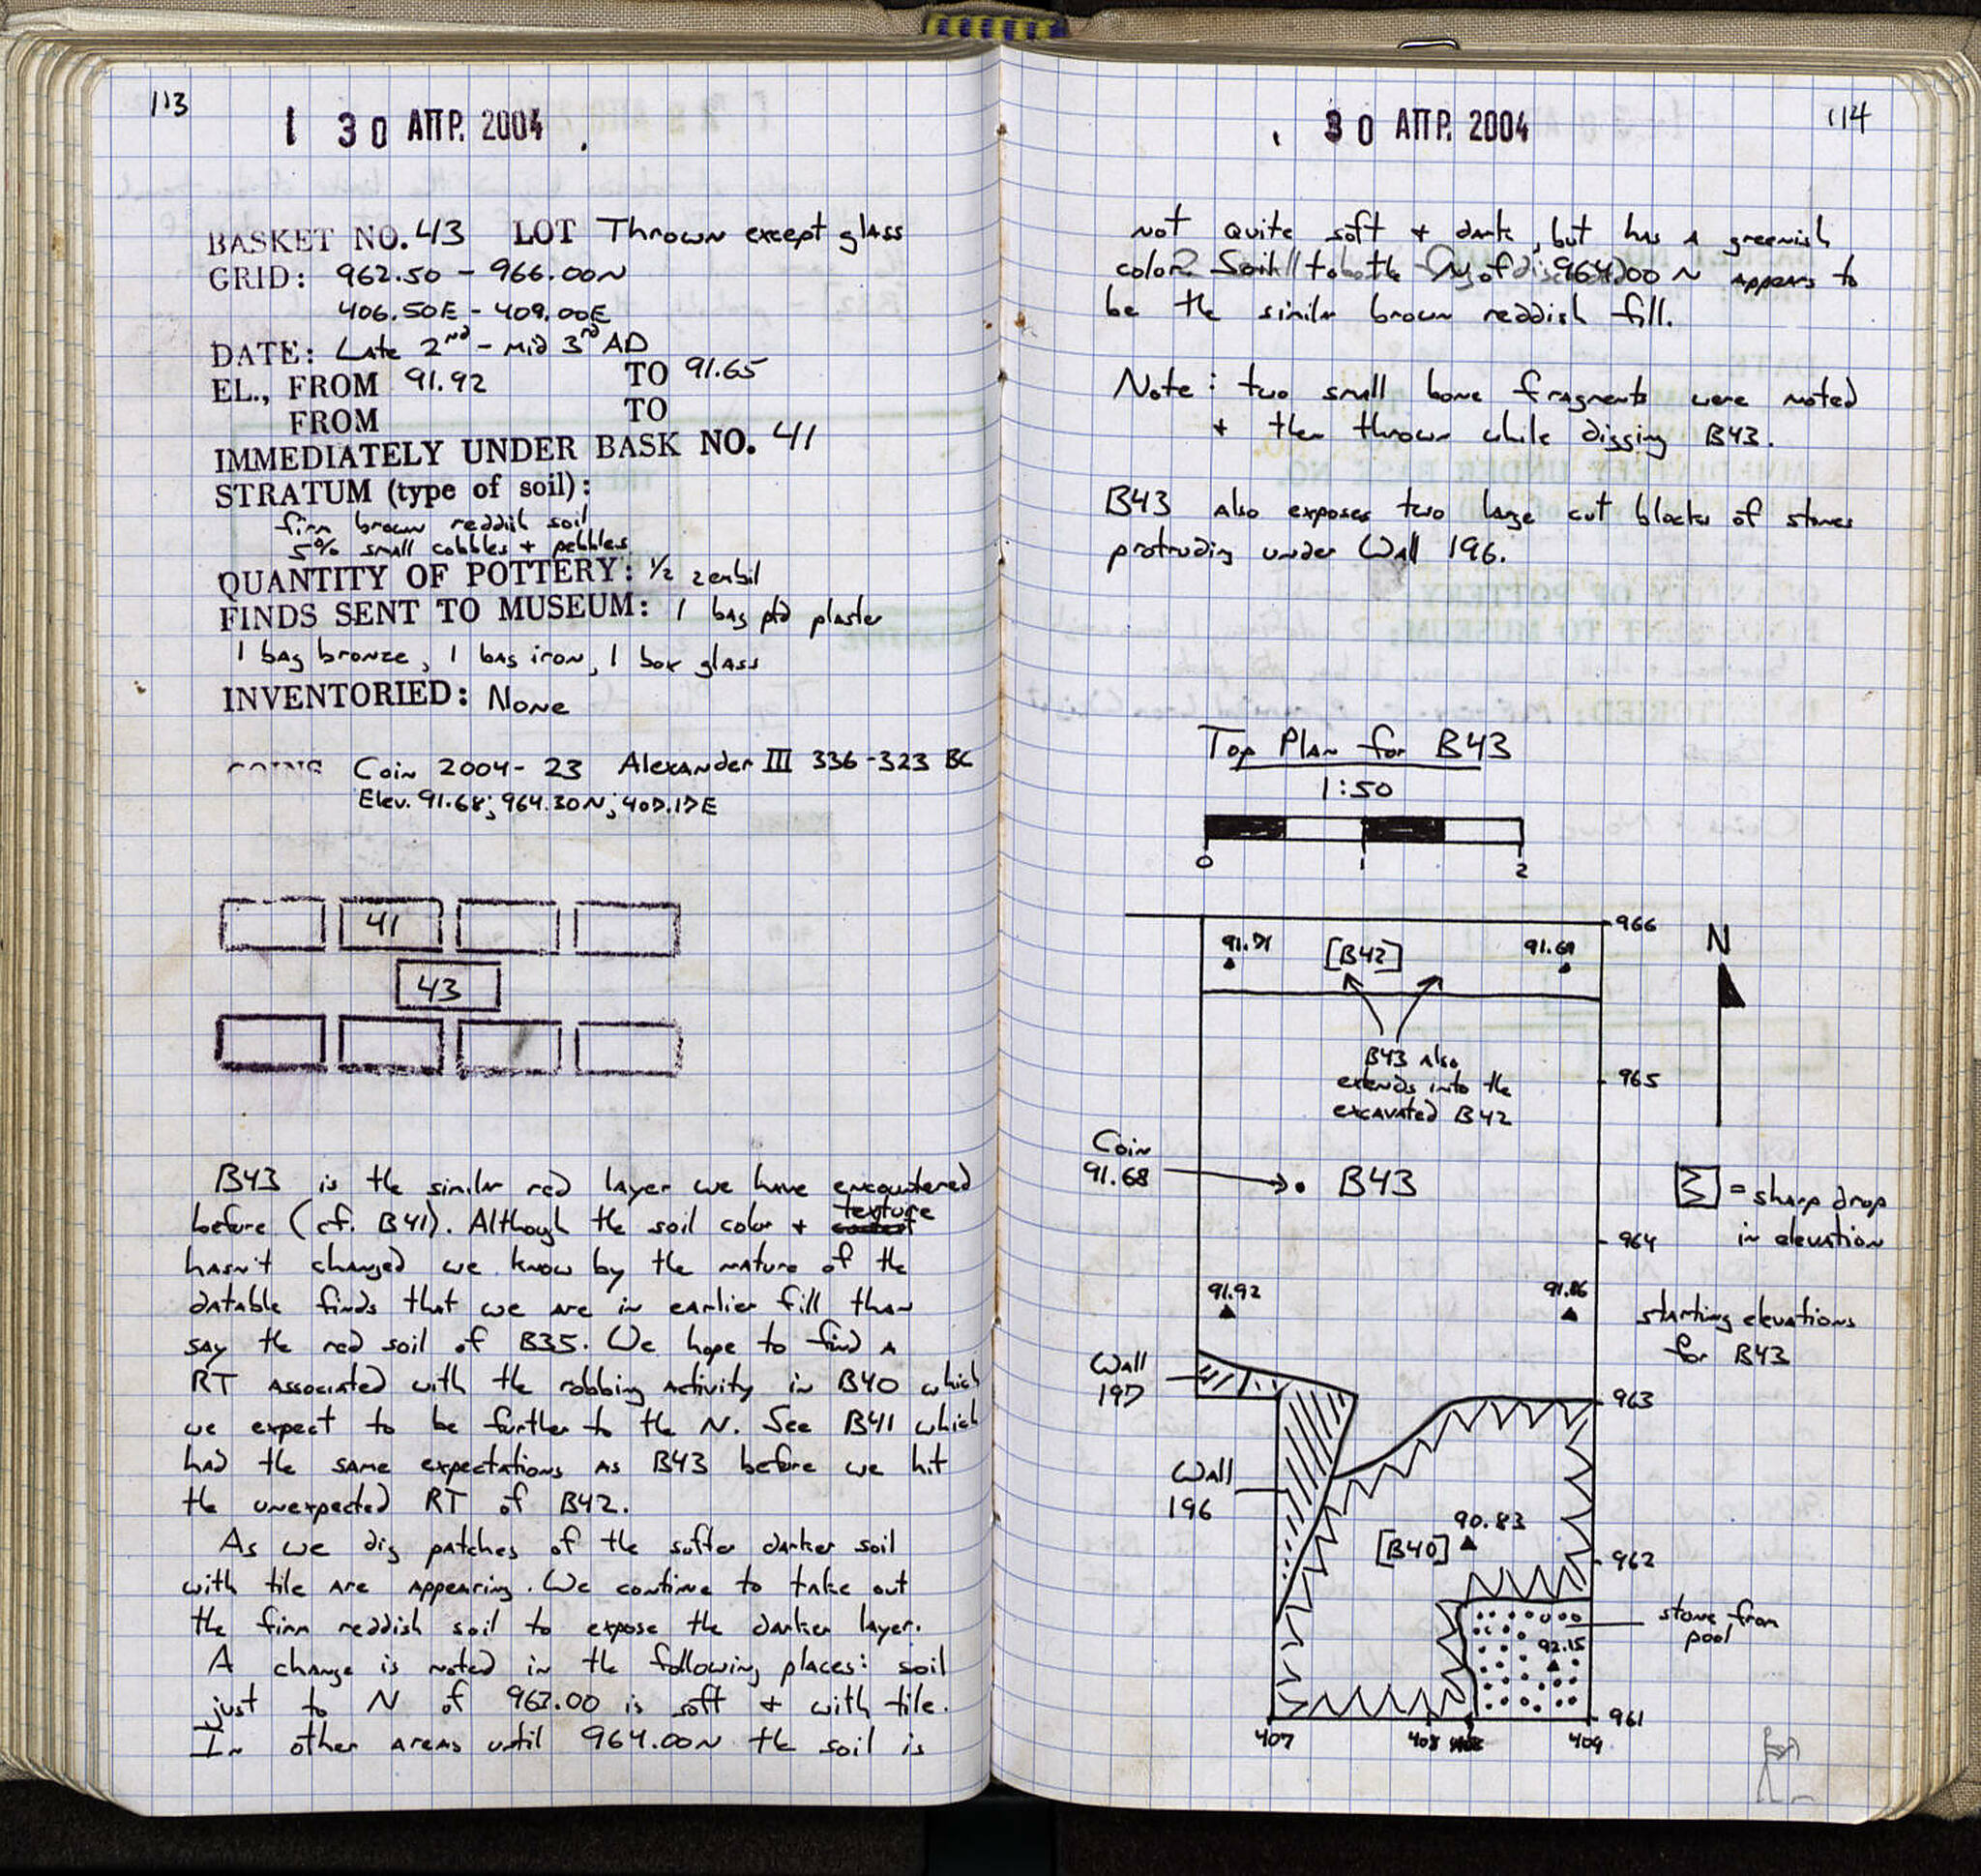 113
30 ΑΠΡ. 2004
BASKET NO. 43 LOT Thrown except glass
GRID: 962.50 - 966.00N
406.50E - 409.00E
DATE: Late 2nd - Mid 3rd AD
EL., FROM 91.92 TO 91.65
FROM TO
IMMEDIATELY UNDER BASK NO. 41
STRATUM (type of soil):
firm brown reddish soil
5% small cobbles + pebbles
QUANTITY OF POTTERY: 1/2 zembil
FINDS SENT TO MUSEUM: 1 bag ptd plaster
1 bag bronze, 1 bag iron, 1 box glass
INVENTORIED: None
COINS Coin 2004-23 Alexander III 336-323 BC
Elev. 91.68; 964.30N; 407.17E
41
43
B43 is the similar red layer we have encountered
before (cf. B41). Although the soil color + texture
hasn't changed we know by the nature of the
datable finds that we are in earlier fill than
say the red soil of B35. We hope to find a
RT associated with the robbing activity in B40 which
we expect to be further to the N. See B41 which
had the same expectations as B43 before we hit
the unexpected RT of B42.
As we dig patches of the softer darker soil
with tile are appearing. We continue to take out
the firm reddish soil to expose the darker layer.
A change is noted in the following places: soil
just to N of 963.00 is soft + with tile.
In other areas until 964.00N the soil is
114
30 ΑΠΡ. 2004
not quite soft + dark, but has a greenish
color. Soil to the N of 964.00 N appears to
be the similar brown reddish fill.
Note: two small bone fragments were noted
+ then thrown while digging B43.
B43 also exposes two large cut blocks of stones
protruding under Wall 196.
Top Plan for B43
1:50
0 1 2
966
N
91.71 [B42] 91.69
B43 also
extends into the
excavated B42
965
Coin
91.68
B43
= sharp drop
in elevation
964
91.92 91.86
starting elevations
for B43
Wall
197
963
Wall
196
90.83
[B40]
962
stone from
pool
92.15
961
407 408 409